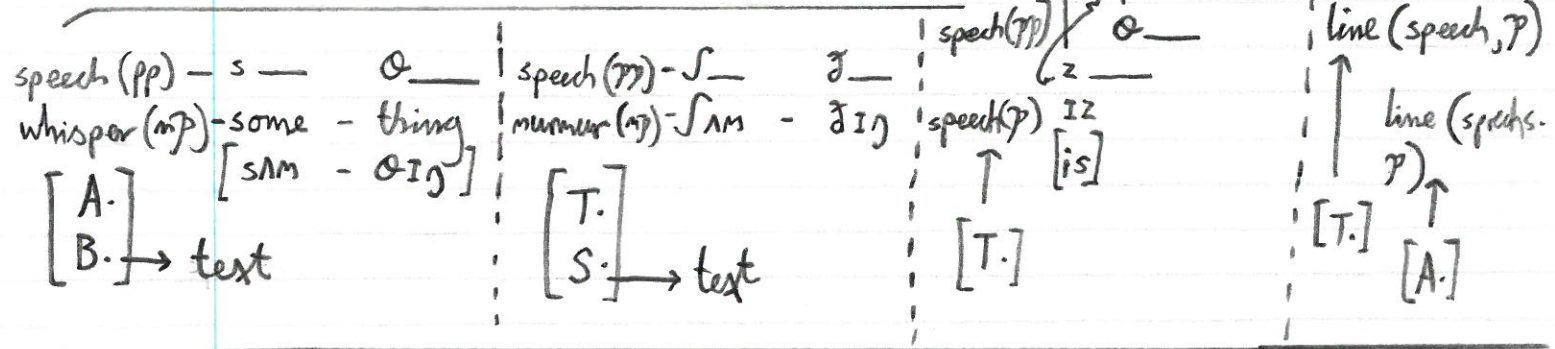 speech (pp) – s __ θ__
whisper (mp) – some – thing
[sʌm – θɪŋ]
[A.
B.] → text
speech (pp) – ʃ__ ʒ__
murmur (mp) – ʃʌm – ʒɪŋ
[T.
S.] → text
speech (pp) θ__
z __
speech (p) ɪz
[is]
[T.]
line (speech, p)
line (speechs.
p)
[T.]
[A.]